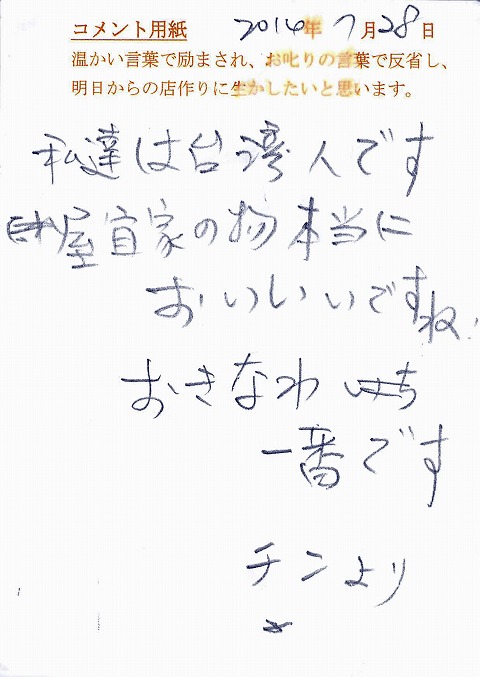 コメント用紙 2014年7月28日
温かい言葉で励まされ、お叱りの言葉で反省し、
明日からの店作りに生かしたいと思います。
私達は台湾人です
屋宜家の物本当に
おいしいいですね!
おきなわ
一番です
チンより